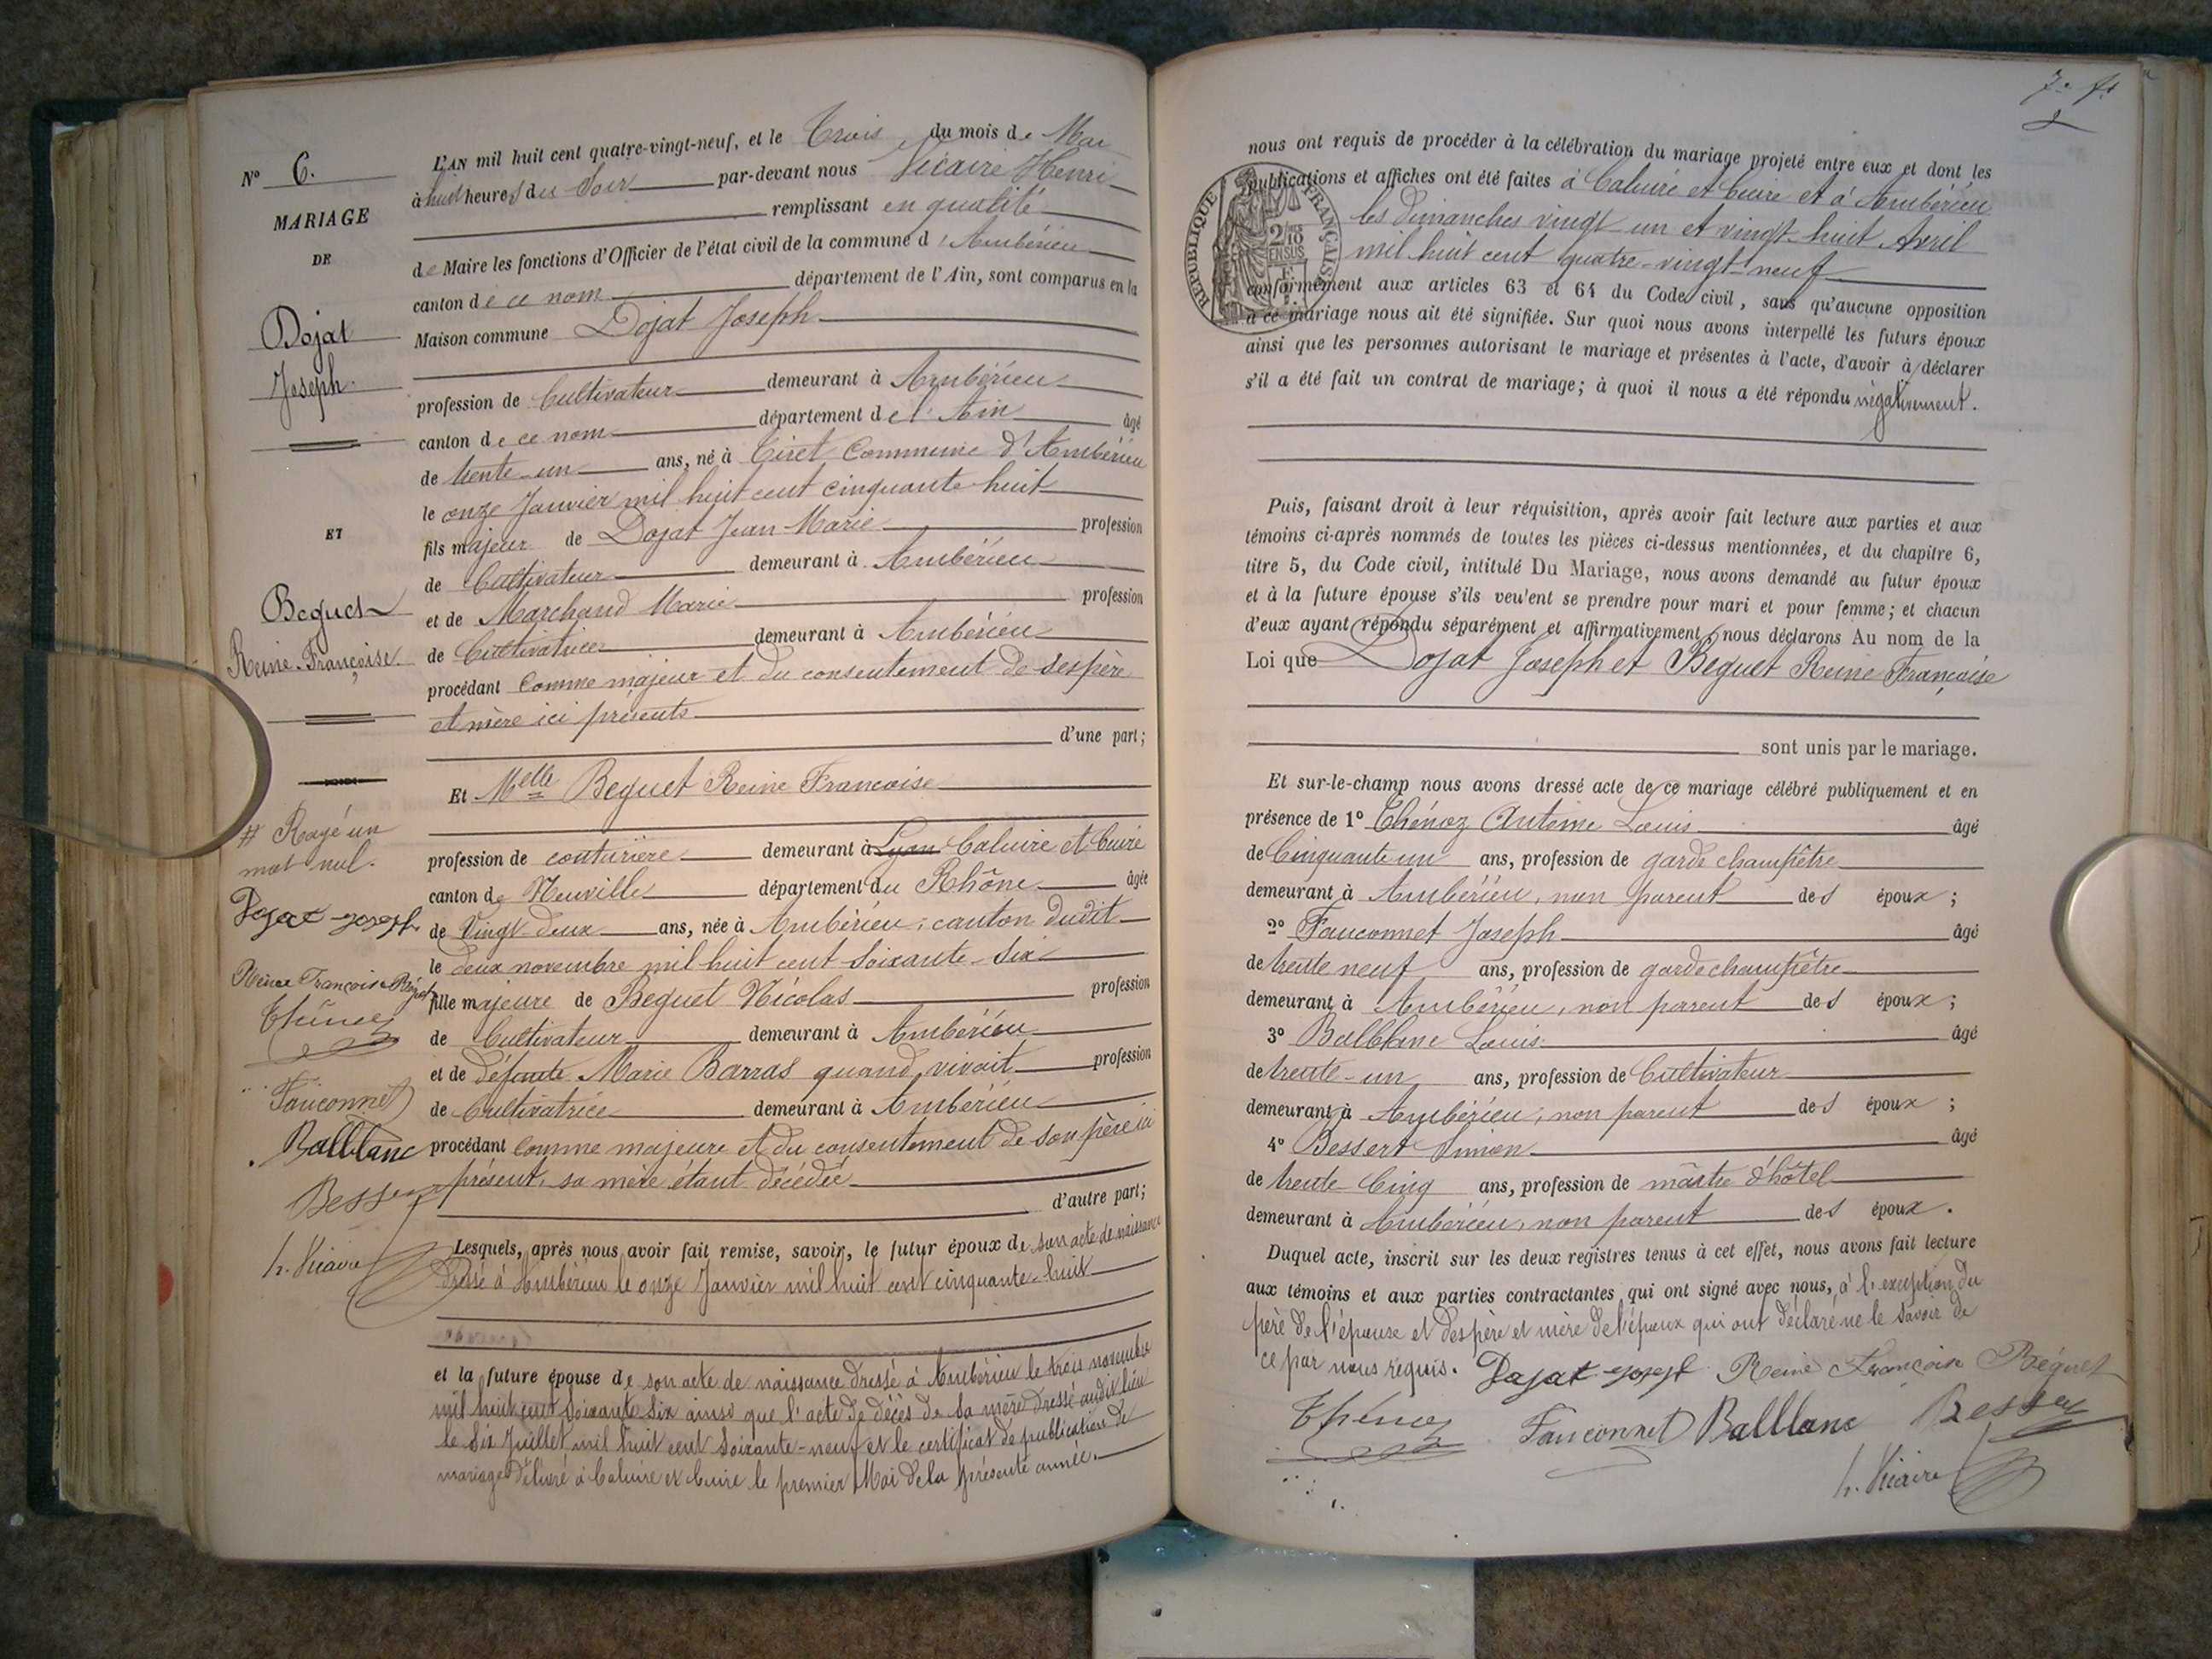 N° 6.
MARIAGE
DE
Dojat
Joseph.
ET
Beguet
Reine Françoise.
# Rayé un
mot nul.
Dojat Joseph
Reine Françoise Béguet
Thénoz
Fauconnet
Balblanc
Bessert
h. Vicaire
L'AN mil huit cent quatre-vingt-neuf, et le Trois du mois de Mai
à huit heures du Soir par-devant nous Vicaire Henri
remplissant en qualité
de Maire les fonctions d'Officier de l'état civil de la commune d'Ambérieu
canton de ce nom département de l'Ain, sont comparus en la
Maison commune Dojat Joseph
profession de Cultivateur demeurant à Ambérieu
canton de ce nom département de l'Ain âgé
de trente-un ans, né à Tiret Commune d'Ambérieu
le onze Janvier mil huit cent cinquante-huit
fils majeur de Dojat Jean-Marie profession
de Cultivateur demeurant à Ambérieu
et de Marchand Marie profession
de Cultivatrice demeurant à Ambérieu
procédant comme majeur et du consentement de ses père
et mère ici présents
d'une part;
Et Melle Beguet Reine Francoise
profession de couturière demeurant à Lyon Caluire et Cuire
canton de Neuville département du Rhône âgée
de Vingt-deux ans, née à Ambérieu; canton dudit
le deux novembre mil huit cent soixante-six
fille majeure de Beguet Nicolas profession
de Cultivateur demeurant à Ambérieu
et de défunte Marie Barras quand vivait profession
de Cultivatrice demeurant à Ambérieu
procédant comme majeure et du consentement de son père ici
présent, sa mère étant décédée
d'autre part;
Lesquels, après nous avoir fait remise, savoir, le futur époux de son acte de naissance
dressé à Ambérieu le onze Janvier mil huit cent cinquante-huit
et la future épouse de son acte de naissance dressé à Ambérieu le trois novembre
mil huit cent soixante six ainsi que l'acte de décès de sa mère dressé audit lieu
le six Juillet mil huit cent soixante-neuf et le certificat de publication de
mariage délivré à Caluire et Cuire le premier Mai de la présente année.
nous ont requis de procéder à la célébration du mariage projeté entre eux et dont les
publications et affiches ont été faites à Caluire et Cuire et à Ambérieu
les dimanches vingt-un et vingt-huit Avril
mil huit cent quatre-vingt neuf
conformément aux articles 63 et 64 du Code civil, sans qu'aucune opposition
à ce mariage nous ait été signifiée. Sur quoi nous avons interpellé les futurs époux
ainsi que les personnes autorisant le mariage et présentes à l'acte, d'avoir à déclarer
s'il a été fait un contrat de mariage; à quoi il nous a été répondu négativement.
RÉPUBLIQUE FRANÇAISE
2/10
EN SUS
Puis, faisant droit à leur réquisition, après avoir fait lecture aux parties et aux
témoins ci-après nommés de toutes les pièces ci-dessus mentionnées, et du chapitre 6,
titre 5, du Code civil, intitulé Du Mariage, nous avons demandé au futur époux
et à la future épouse s'ils veulent se prendre pour mari et pour femme; et chacun
d'eux ayant répondu séparément et affirmativement, nous déclarons Au nom de la
Loi que Dojat Joseph et Beguet Reine Françoise
sont unis par le mariage.
Et sur-le-champ nous avons dressé acte de ce mariage célébré publiquement et en
présence de 1° Thénoz Antoine Louis âgé
de Cinquante un ans, profession de garde champêtre
demeurant à Ambérieu, non parent des époux;
2° Fauconnet Joseph âgé
de trente neuf ans, profession de garde champêtre
demeurant à Ambérieu, non parent des époux;
3° Balblanc Louis âgé
de trente-un ans, profession de Cultivateur
demeurant à Ambérieu, non parent des époux;
4° Bessert Simon âgé
de trente-Cinq ans, profession de maître d'hôtel
demeurant à Ambérieu, non parent des époux.
Duquel acte, inscrit sur les deux registres tenus à cet effet, nous avons fait lecture
aux témoins et aux parties contractantes qui ont signé avec nous, à l'exception du
père de l'épouse et des père et mère de l'époux qui ont déclaré ne le savoir de
ce par nous requis. Dojat Joseph Reine Françoise Béguet
Thénoz Fauconnet Balblanc Bessert
h. Vicaire